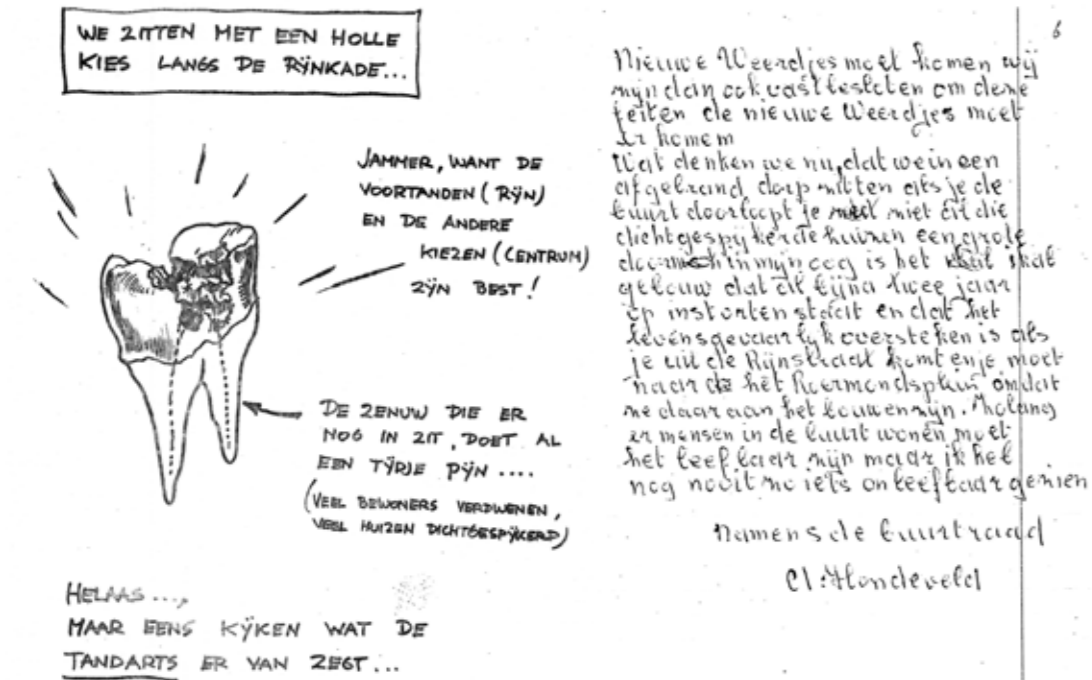 WE ZITTEN MET EEN HOLLE
KIES LANGS DE RŸNKADE...
JAMMER, WANT DE
VOORTANDEN (RŸN)
EN DE ANDERE
KIEZEN (CENTRUM)
ZŸN BEST!
DE ZENUW DIE ER
NOG IN ZIT, DOET AL
EEN TŸDJE PŸN ....
(VEEL BEWONERS VERDWENEN,
VEEL HUIZEN DICHTGESPŸKERD)
HELAAS...,
MAAR EENS KŸKEN WAT DE
TANDARTS ER VAN ZEGT...
6
Nieuwe Weerdjes moet komen wij
zijn dan ook vast besloten om deze
feiten de nieuwe Weerdjes moet
er komem
Wat denken we nu, dat we in een
afgebrand dorp zitten als je de
buurt doorloopt je niet die
dichtgespijkerde huizen een grote
in mijn oog is het
gebouw dat al bijna twee jaar
op instorten staat en dat het
levensgevaarlijk oversteken is als
je uit de Rijnstraat komt en je moet
naar het Roermondsplein omdat
ze daar aan het bouwen zijn. Zolang
er mensen in de buurt wonen moet
het leefbaar zijn maar ik heb
nog nooit zo iets onleefbaar gezien
Namens de buurtraad